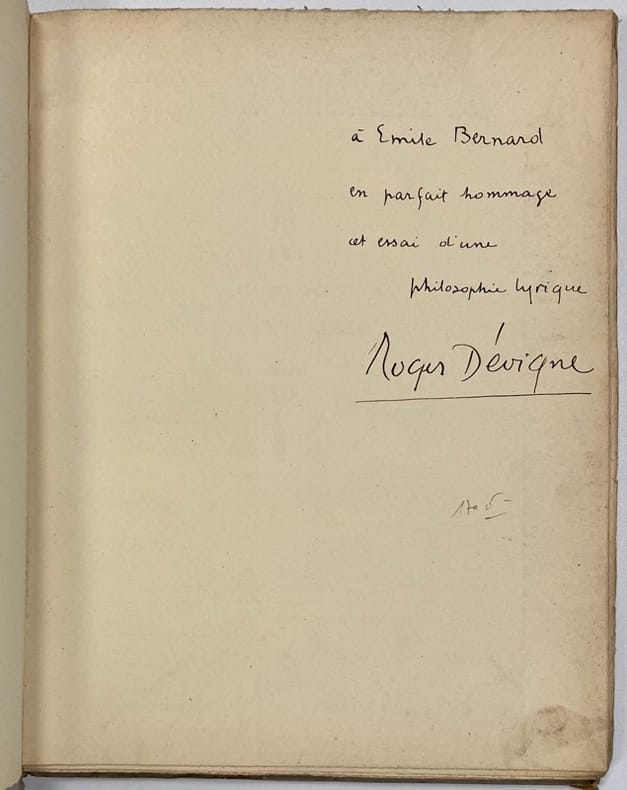 à Emile Bernard
en parfait hommage
cet essai d'une
philosophie lyrique
Roger Dévigne